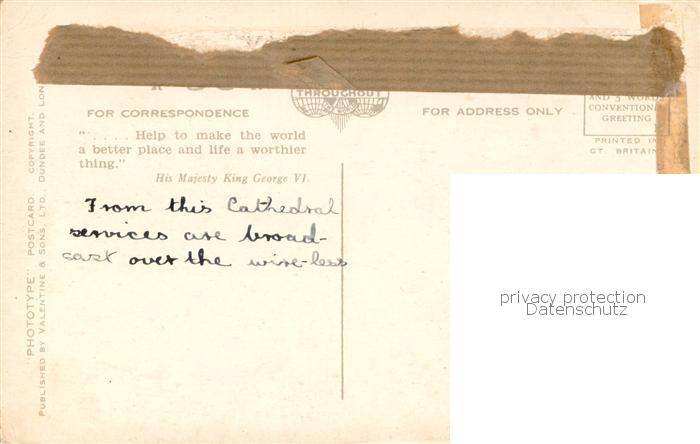 THROUGHOUT
FOR CORRESPONDENCE
FOR ADDRESS ONLY
AND 5 WORDS
CONVENTIONAL
GREETING
PRINTED IN
GT. BRITAIN
". . . . Help to make the world
a better place and life a worthier
thing."
His Majesty King George VI.
From this Cathedral
services are broad-
cast over the wire-less
"PHOTOTYPE" POSTCARD. COPYRIGHT.
PUBLISHED BY VALENTINE & SONS, LTD. DUNDEE AND LON
privacy protection
Datenschutz